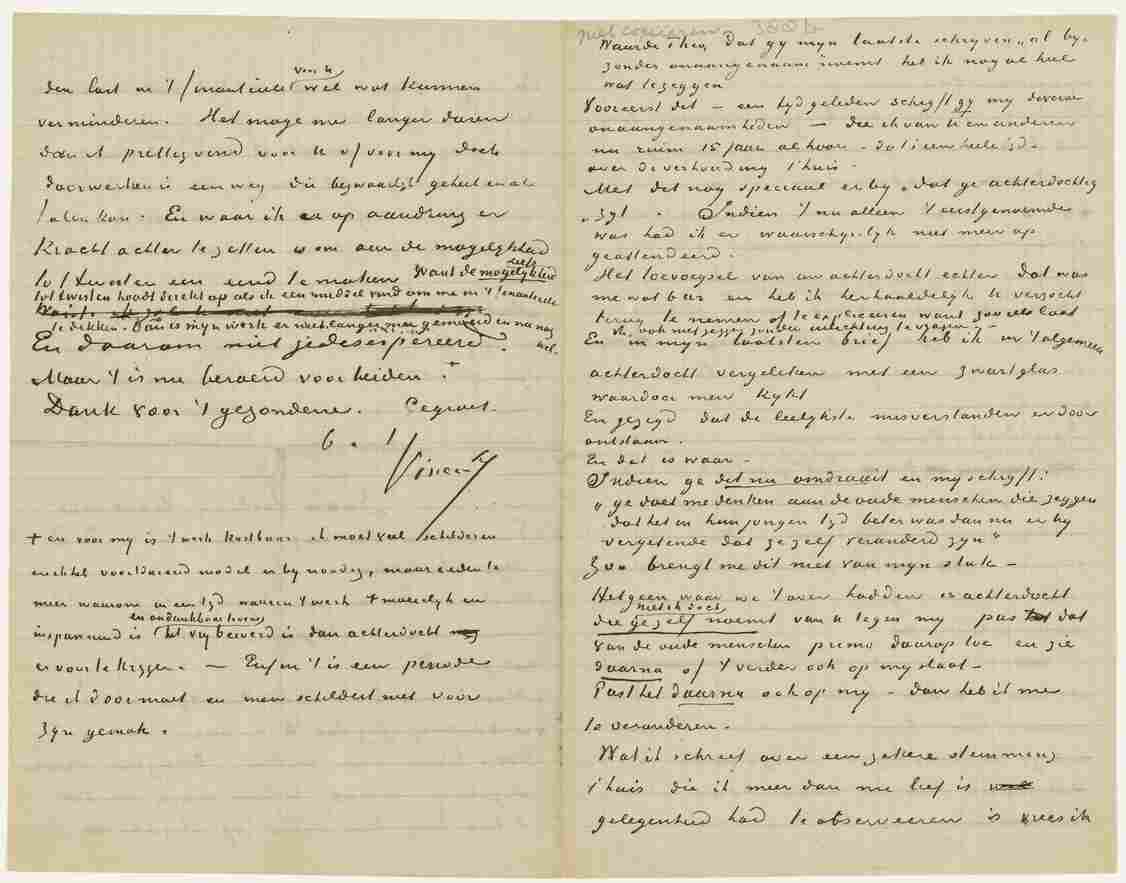 den last in 't financieele voor u wel wat kunnen
verminderen. Het moge nu langer duren
dan it prettig vind voor u of voor my doch
doorwerken is een weg die bezwaarlyk geheel en al
falen kan. En waar ik er op aandring er
kracht achter te zetten is om aan de mogelykheid
tot twisten een eind te maken Want de mogelykheid zelfs
tot twisten houdt direkt op als ik een middel vind om me in 't financieele
te dekken. Dan is myn werk er niet langer mee gemoeid en nu nog
wel.
En daarom niet gedesespereerd.
Maar 't is nu beroerd voor beiden. +
Dank voor 't gezondene. Gegroet.
b. à t
Vincent
+ en voor my is 't werk kostbaar ik moet veel schilderen
en ik heb voortdurend model er by noodig, maar reden te
meer waarom in een tyd waarin 't werk + moeielyk en
inspannend is en ondankbaar tevens het vry beroerd is dan achterdocht
er voor te krygen. — Enfin 't is een periode
die ik door moet en men schildert niet voor
zyn gemak.
niet copieeren 388 b
Waarde Theo, dat gy myn laatste schryven „al by-
zonder onaangenaam" noemt heb ik nog al heel
wat te zeggen
Vooreerst dit — een tyd geleden schryft gy my diverse
onaangenaamheden — die ik van u en anderen
nu ruim 15 jaar al hoor. — dat is een heele tyd. —
over de verhouding met thuis
Met dit nog speciaal er by „dat ge achterdochtig
„zyt". Indien 't nu alleen 't eerstgenoemde
was had ik er waarschynlyk niet meer op
geattendeerd.
Het toevoegsel van uw achterdocht echter dat was
me wat bar en heb ik herhaaldelyk u verzocht
terug te nemen of te expliceeren want zoo iets laat
ik my ook niet zeggen zonder inlichting te vragen. —
En in myn laatsten brief heb ik in 't algemeen
achterdocht vergeleken met een zwart glas
waardoor men kykt
En gezegd dat de leelykste misverstanden er door
ontstaan.
En dat is waar —
Indien ge dit nu omdraait en my schryft:
„ge doet me denken aan de oude menschen die zeggen
dat het in hun jongen tyd beter was dan nu er by
vergetende dat ze zelf veranderd zyn"
Zoo brengt me dit niet van myn stuk —
Hetgeen waar we 't over hadden is achterdocht
die ge zelf noemt van u tegen my pas dat
van de oude menschen primo daarop toe en zie
daarna of 't verder ook op my slaat —
Past het daarna ook op my — dan heb ik me
te veranderen. —
Wat ik schreef over een zekere stemming
thuis die ik meer dan me lief is
gelegenheid had te observeeren is vrees ik